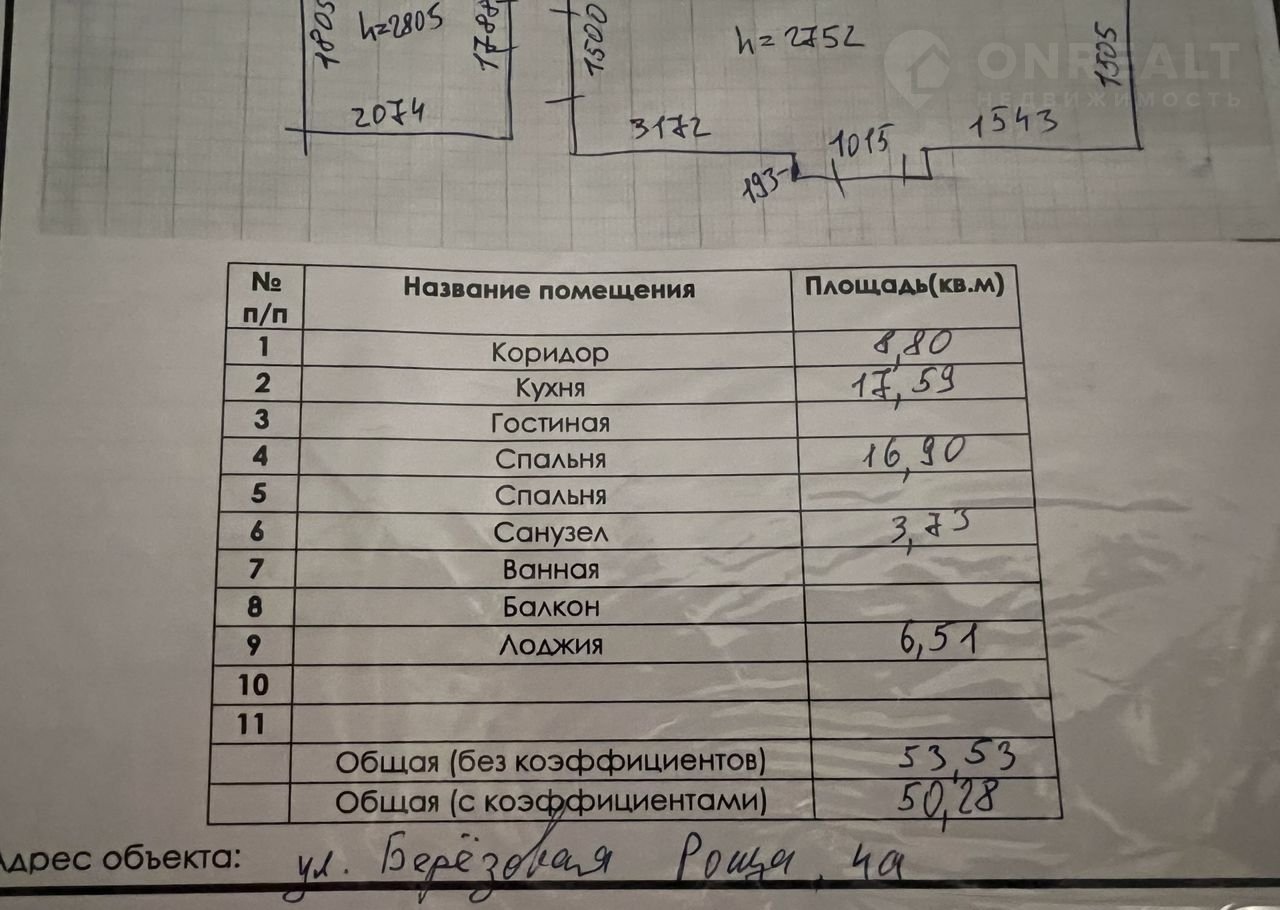 1805
h=2805
1787
1500
h=2752
1505
ONREALT
НЕДВИЖИМОСТЬ
2074
3172
1015
1543
193
№ п/п Название помещения Площадь(кв.м)
1 Коридор 8,80
2 Кухня 17,59
3 Гостиная
4 Спальня 16,90
5 Спальня
6 Санузел 3,73
7 Ванная
8 Балкон
9 Лоджия 6,51
10
11
Общая (без коэффициентов) 53,53
Общая (с коэффициентами) 50,28
Адрес объекта: ул. Берёзовая Роща, 4а